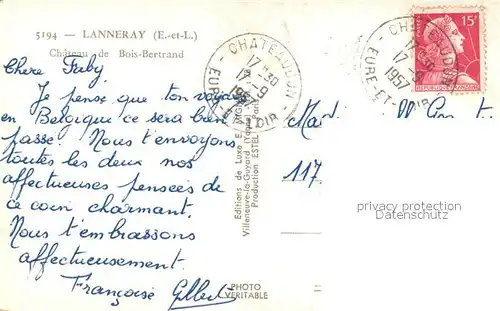 5194 - LANNERAY (E.-et-L.)
Château de Bois-Bertrand
Chere Faby
Je pense que ton voyage
en Belgique ce sera bien
passé. Nous t'envoyons
toutes les deux nos
affectueuses pensées de
ce coin charmant.
Nous t'embrassons
affectueusement.
Françoise Gilbert
CHATEAUDUN
17-30
17-9
1957
EURE-ET-LOIR
CHATEAUDUN
17-30
17-9
1957
EURE-ET-LOIR
15F
REPUBLIQUE FRANÇAISE
117
Editions de Luxe
Villeneuve-la-Guyard (Yonne)
Production ESTEL
PHOTO
VERITABLE
privacy protection
Datenschutz